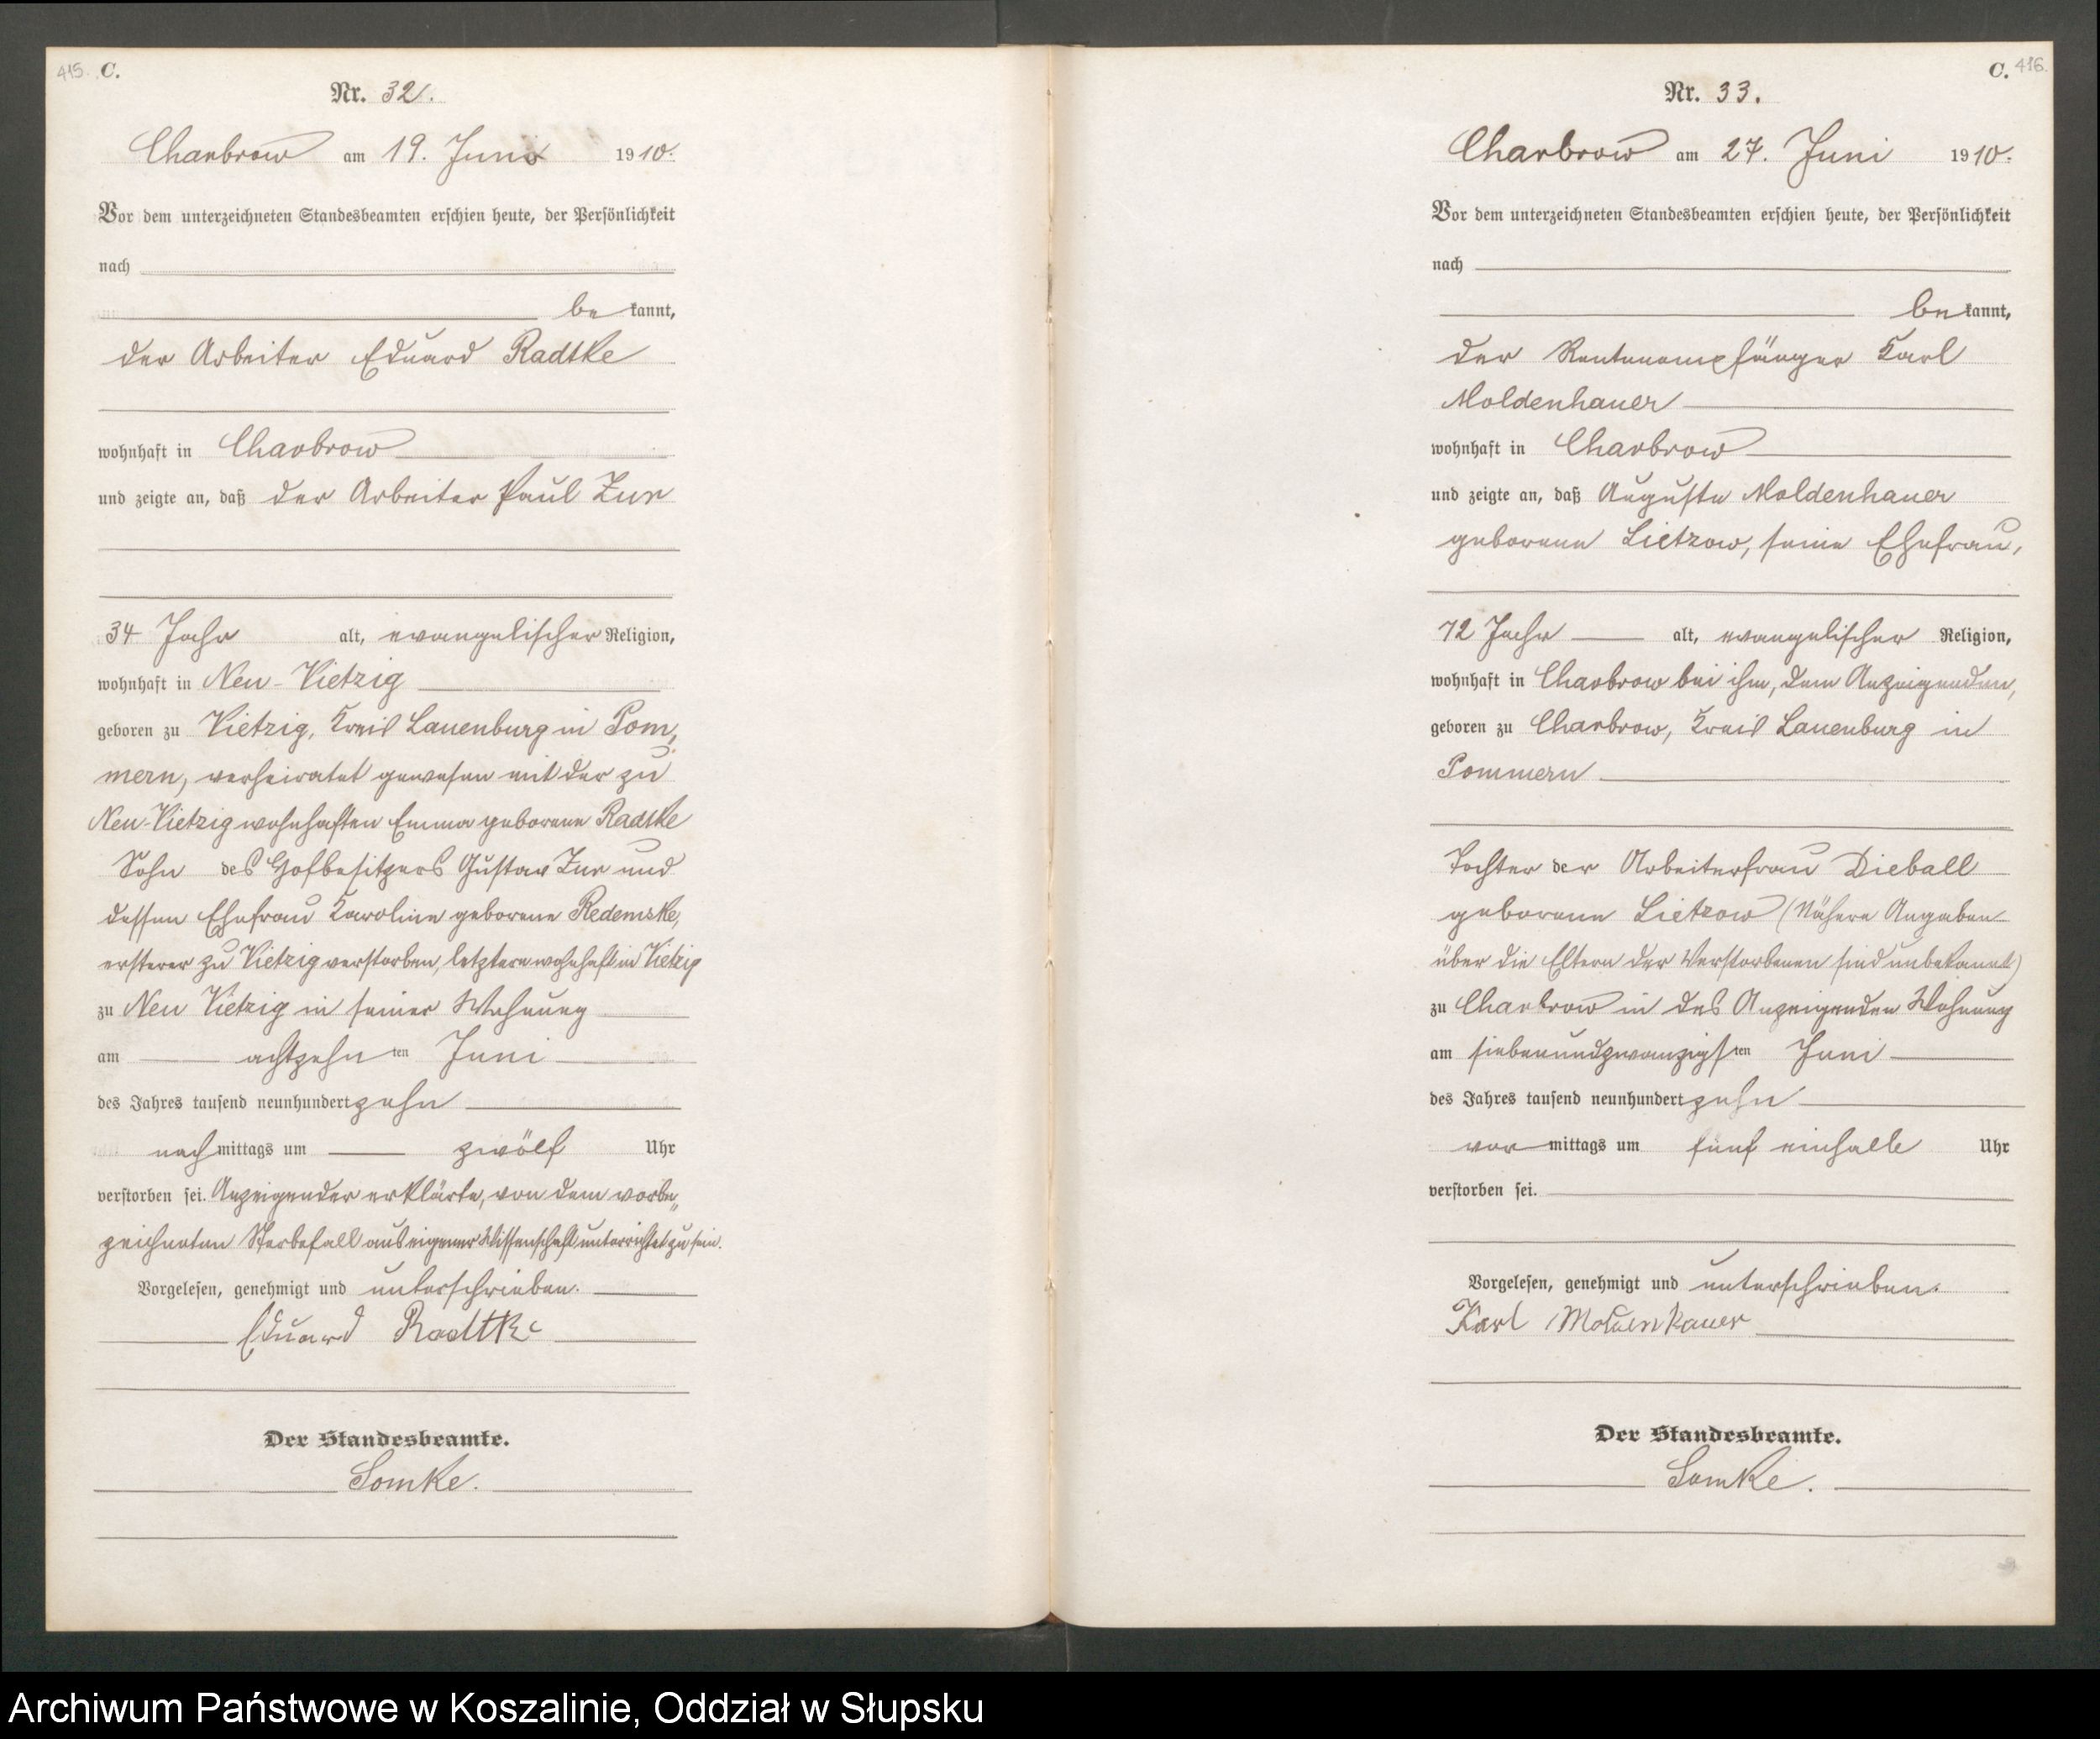 415. C.
Nr. 32.
Charbrow am 19. Juni 1910.
Vor dem unterzeichneten Standesbeamten erschien heute, der Persönlichkeit
nach
be kannt,
der Arbeiter Eduard Radtke
wohnhaft in Charbrow
und zeigte an, daß der Arbeiter Paul Zur
34 Jahr alt, evangelischer Religion,
wohnhaft in Neu-Vietzig
geboren zu Vietzig, Kreis Lauenburg in Pom„
mern, verheiratet gewesen mit der zu
Neu-Vietzig wohnhaften Emma geborene Radtke
Sohn des Hofbesitzers Gustav Zur und
dessen Ehefrau Karoline geborene Redemske,
ersterer zu Vietzig verstorben, letztere wohnhaft in Vietzig
zu Neu Vietzig in seiner Wohnung
am achtzehn ten Juni
des Jahres tausend neunhundert zehn
nach mittags um zwölf Uhr
verstorben sei. Anzeigender erklärte, von dem vorbe„
zeichneten Sterbefall aus eigener Wissenschaft unterrichtet zu sein.
Vorgelesen, genehmigt und unterschrieben.
Eduard Radtke
Der Standesbeamte.
Somke.
C. 416.
Nr. 33.
Charbrow am 27. Juni 1910.
Vor dem unterzeichneten Standesbeamten erschien heute, der Persönlichkeit
nach
be kannt,
der Rentenempfänger Karl
Moldenhauer
wohnhaft in Charbrow
und zeigte an, daß Auguste Moldenhauer
geborene Lietzow, seine Ehefrau,
72 Jahr alt, evangelischer Religion,
wohnhaft in Charbrow bei ihm, dem Anzeigenden,
geboren zu Charbrow, Kreis Lauenburg in
Pommern
Tochter der Arbeiterfrau Dieball
geborene Lietzow (Nähere Angaben
über die Eltern der Verstorbenen sind unbekannt)
zu Charbrow in des Anzeigenden Wohnung
am siebenundzwanzigs ten Juni
des Jahres tausend neunhundert zehn
vor mittags um fünf einhalb Uhr
verstorben sei.
Vorgelesen, genehmigt und unterschrieben.
Karl Moldenhauer
Der Standesbeamte.
Somke.
Archiwum Państwowe w Koszalinie, Oddział w Słupsku